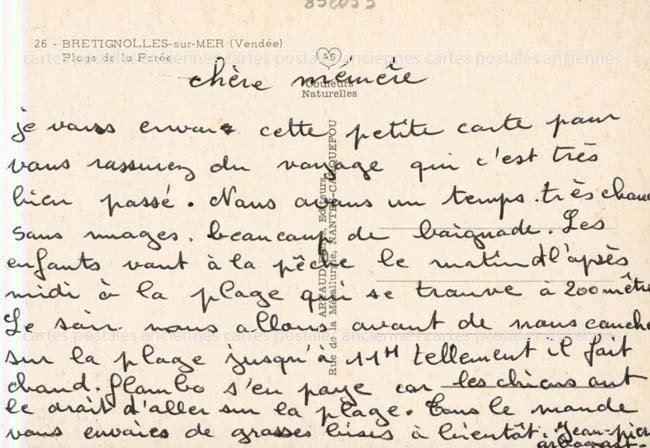 85c055
26 - BRETIGNOLLES-sur-MER (Vendée)
Plage de la Parée
cartes postales anciennes cartes postales anciennes cartes postales anciennes
Couleurs
Naturelles
chère mémère
je vous envoie cette petite carte pour
vous rassurez du voyage qui c'est très
bien passé. Nous avons un temps très chaud
sans nuages. beaucoup de baignade. Les
enfants vont à la pêche le matin et l'après
midi à la plage qui se trouve à 200 mètre
Le soir nous allons avant de nous couche
sur la plage jusqu'à 11H tellement il fait
chaud. flambo s'en paye car les chiens ont
le droit d'aller sur la plage. Tous le monde
vous envoies de grosses bises à bientôt. Jean-pierre
ARNAUD Editeurs
Rue de la Métallurgie, NANTES-CARQUEFOU